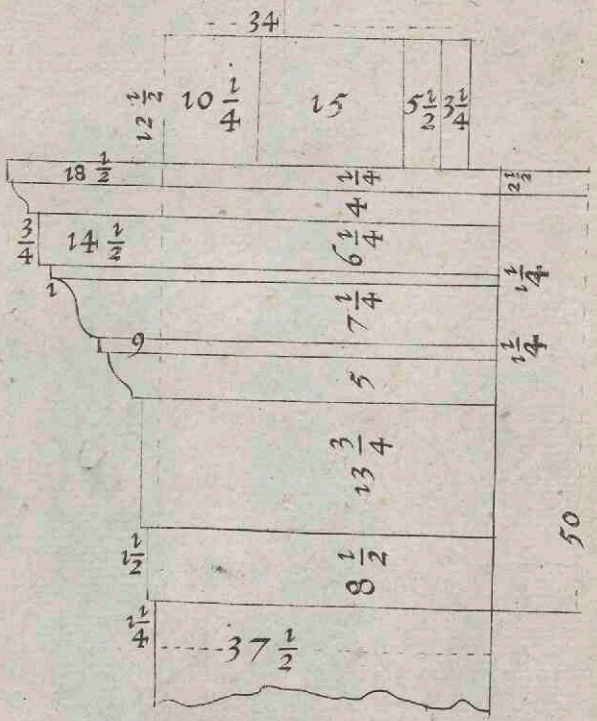 34
12 1/2 10 1/4 15 5 1/2 3 1/4
18 1/2 1/4 2 1/2
4
3/4 14 1/2 6 1/4
1 1 1/4
7 1/4
9 1 1/4
5
13 3/4
1 1/2 8 1/2 50
1 1/4
37 1/2